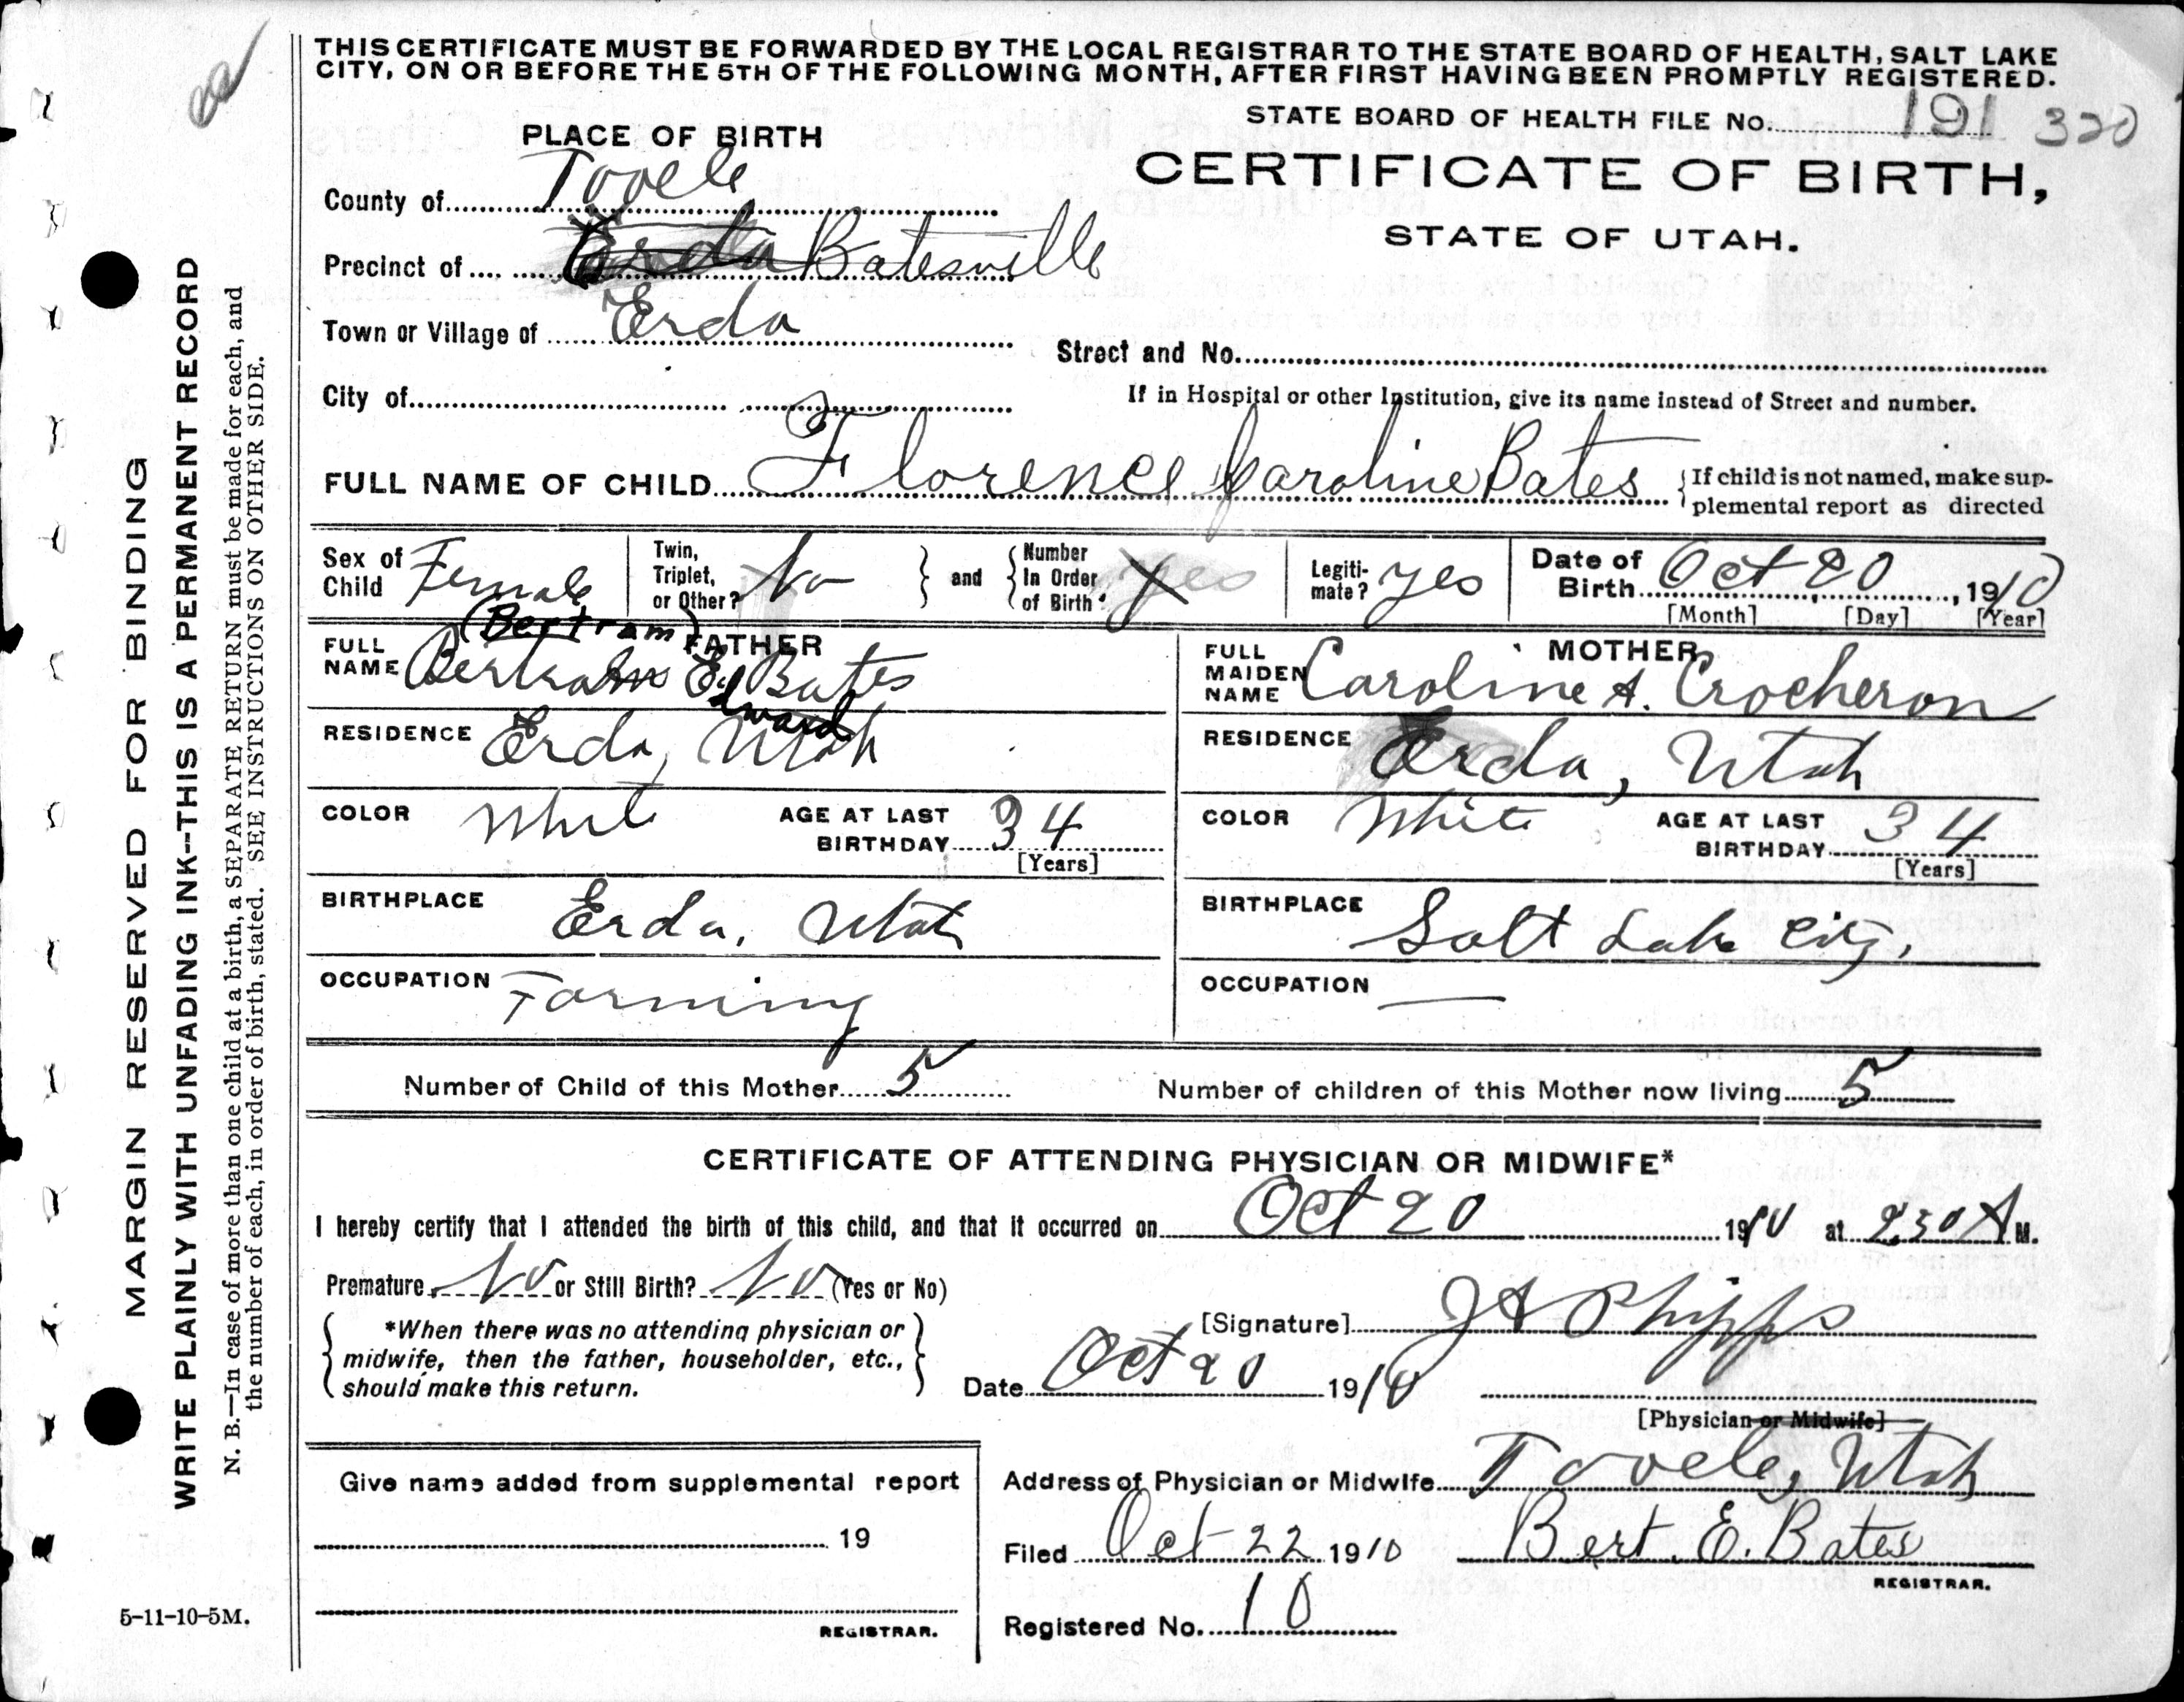 THIS CERTIFICATE MUST BE FORWARDED BY THE LOCAL REGISTRAR TO THE STATE BOARD OF HEALTH, SALT LAKE
CITY, ON OR BEFORE THE 5TH OF THE FOLLOWING MONTH, AFTER FIRST HAVING BEEN PROMPTLY REGISTERED.
STATE BOARD OF HEALTH FILE No. 191 320
PLACE OF BIRTH
CERTIFICATE OF BIRTH,
STATE OF UTAH.
County of Tooele
Precinct of Erda Batesville
Town or Village of Erda
Street and No.
City of
If in Hospital or other Institution, give its name instead of Street and number.
FULL NAME OF CHILD Florence Caroline Bates
{If child is not named, make sup-
plemental report as directed
Sex of Child Female
Twin, Triplet, or Other? No
and
Number In Order of Birth Yes
Legiti-mate? yes
Date of Birth Oct 20, 1910
[Month] [Day] [Year]
(Bertram)
FATHER
FULL NAME Bertram E. Bates
Edward
MOTHER
FULL MAIDEN NAME Caroline A. Crocheron
RESIDENCE Erda, Utah
RESIDENCE Erda, Utah
COLOR White
AGE AT LAST BIRTHDAY 34
[Years]
COLOR White
AGE AT LAST BIRTHDAY 34
[Years]
BIRTHPLACE Erda, Utah
BIRTHPLACE Salt Lake City,
OCCUPATION Farming
OCCUPATION —
Number of Child of this Mother 5
Number of children of this Mother now living 5
CERTIFICATE OF ATTENDING PHYSICIAN OR MIDWIFE*
I hereby certify that I attended the birth of this child, and that it occurred on Oct 20 1910 at 2.30 A M.
Premature No or Still Birth? No (Yes or No)
*When there was no attending physician or
midwife, then the father, householder, etc.,
should make this return.
[Signature] J A Phipps
Date Oct 20 1910
[Physician or Midwife]
Give name added from supplemental report
19
REGISTRAR.
Address of Physician or Midwife Tooele, Utah
Filed Oct 22 1910 Bert. E. Bates
REGISTRAR.
Registered No. 10
MARGIN RESERVED FOR BINDING
WRITE PLAINLY WITH UNFADING INK--THIS IS A PERMANENT RECORD
N. B.—In case of more than one child at a birth, a SEPARATE RETURN must be made for each, and
the number of each, in order of birth, stated. SEE INSTRUCTIONS ON OTHER SIDE.
5-11-10-5M.